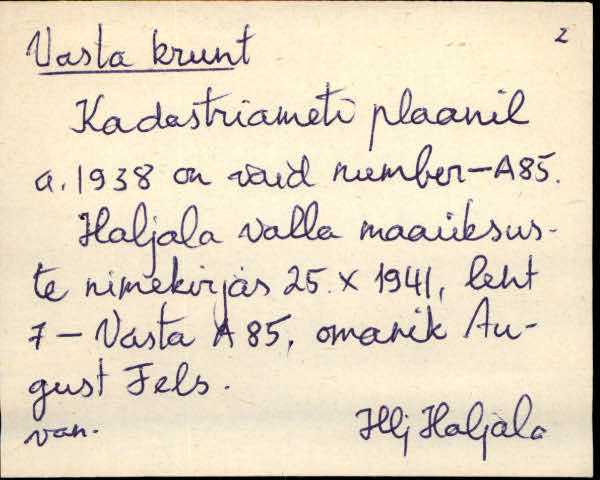 2
Vasta krunt
Kadastriameti plaanil
a. 1938 on vaid number – A85.
Haljala valla maaüksus-
te nimekirjas 25. X 1941, leht
7 – Vasta A 85, omanik Au-
gust Fels.
van. Hlj Haljala